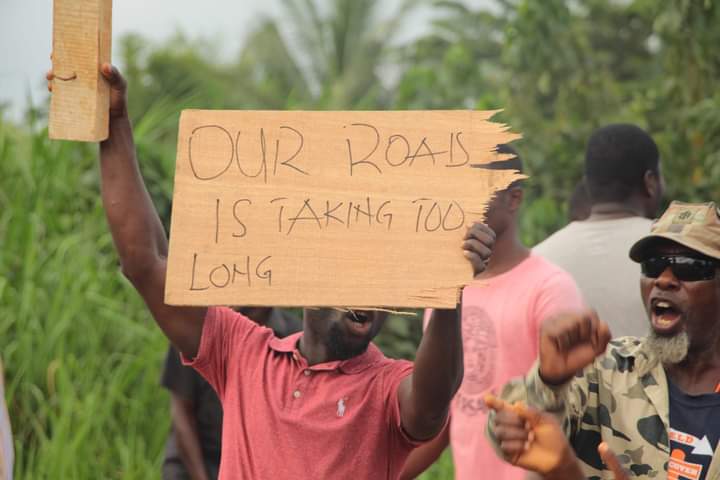 OUR ROAD
IS TAKING TOO
LONG